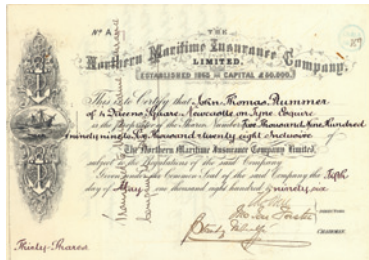 No. A
THE
Northern Maritime Insurance Company,
LIMITED.
ESTABLISHED 1863 CAPITAL £50,000.
This is to Certify that John Thomas Plummer
of 4 Queens Square Newcastle on Tyne Esquire
is the Proprietor of the Shares Numbered Two Thousand Nine Hundred
& ninety nine to Thousand & twenty eight Inclusive of
The Northern Maritime Insurance Company Limited,
subject to the Regulations of the said Company.
Given under the Common Seal of the said Company the Fifth
day of May one thousand eight hundred & ninety six
DIRECTORS
CHAIRMAN
Thirty Shares